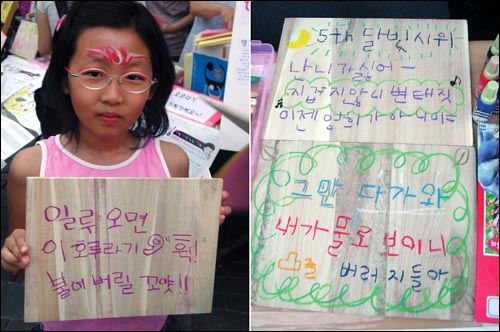 일루 오면
이 호루라기 "휙!"
불어버릴 꼬얏!!
5th 달빛시위
난 니가 싫어ー
지겹지 않니 변태짓
이젠 아니야~
그만 다가와
내가 물로 보이니
버러지들아